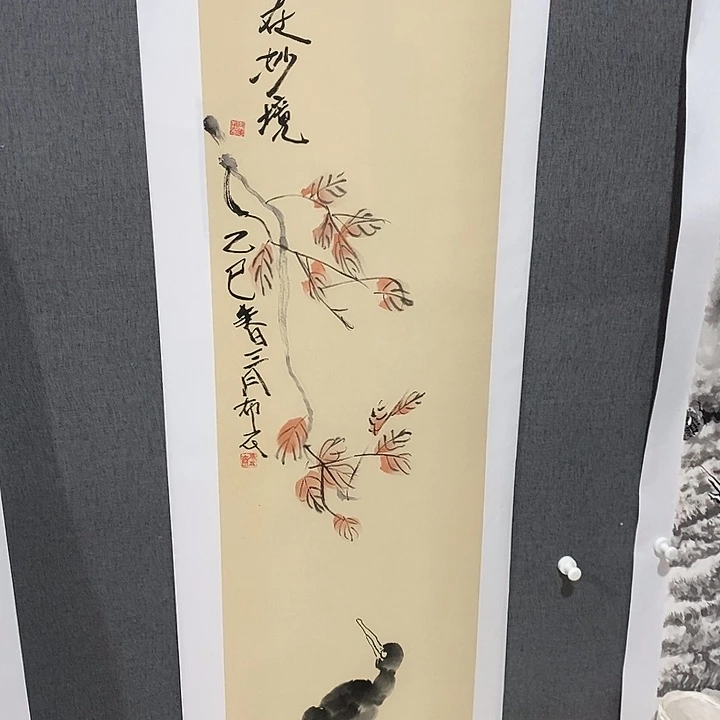 在妙境
乙巳春三月布衣